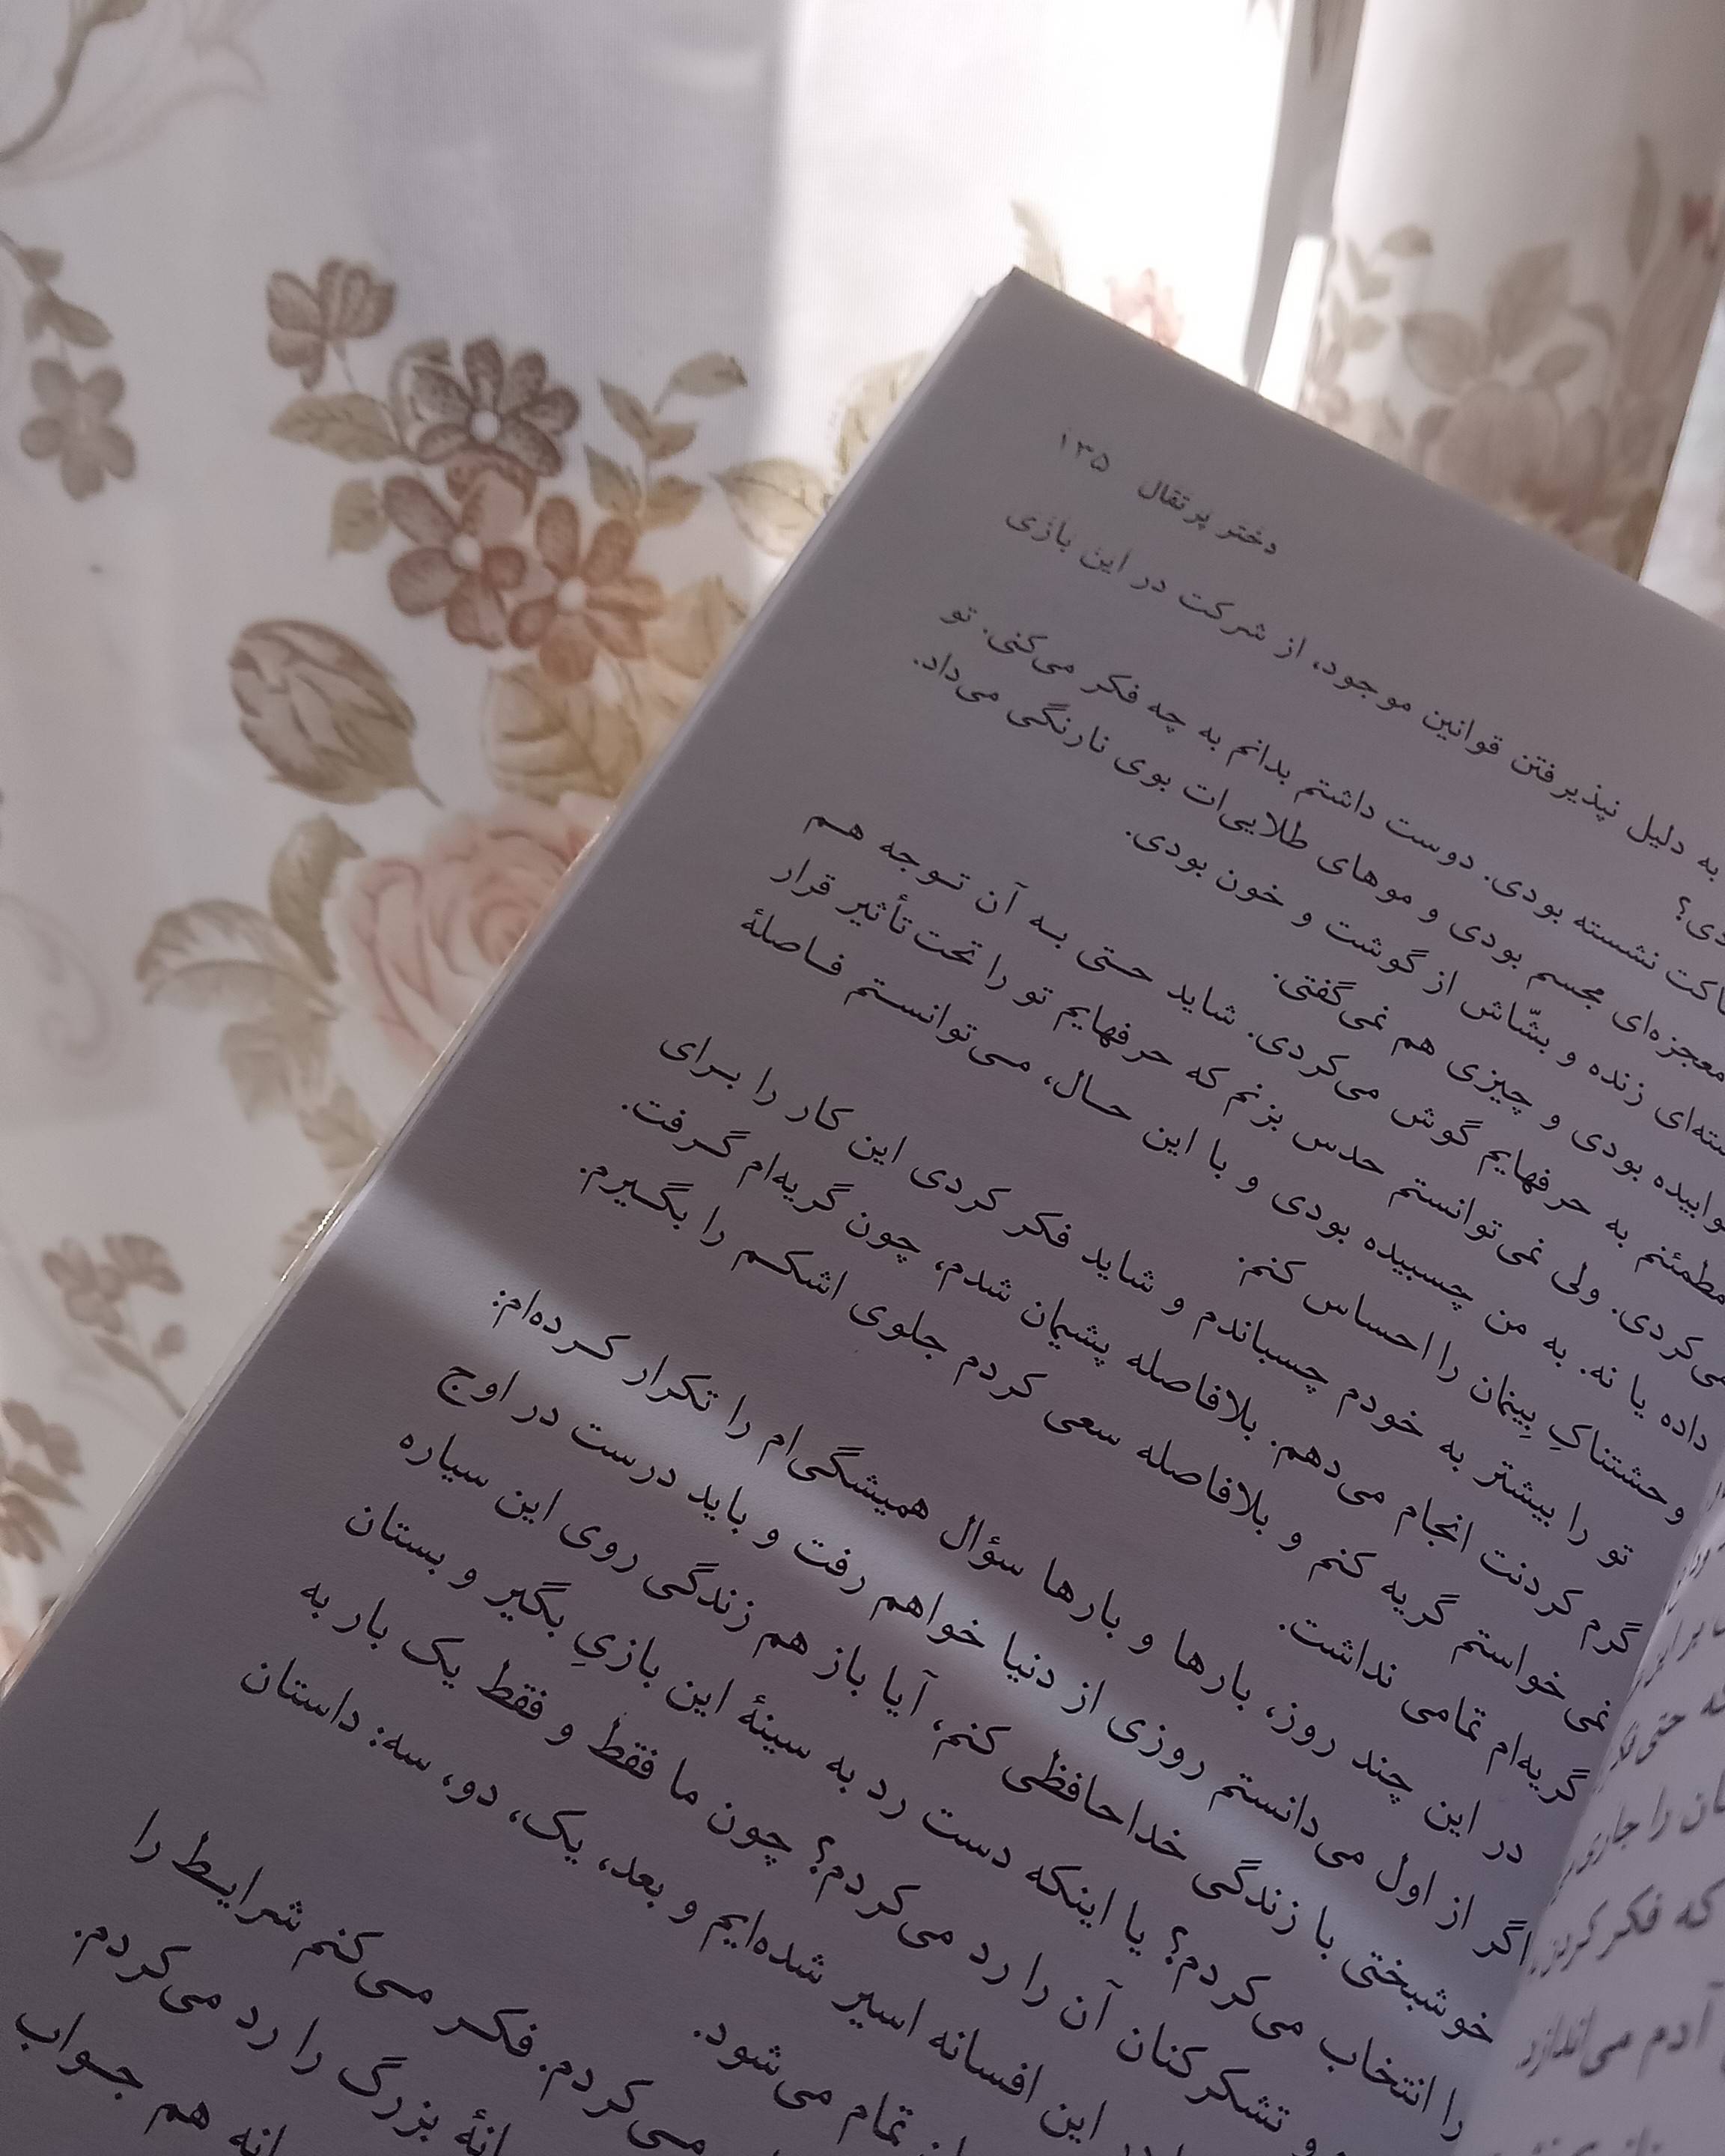 دختر پرتقال ۱۳۵
به دلیل نپذیرفتن قوانین موجود، از شرکت در این بازی
نشسته بودی. دوست داشتم بدانم به چه فکر می‌کنی. تو
معجزه‌ای مجسم بودی و موهای طلایی‌ات بوی نارنگی می‌داد.
زنده و بشّاش از گوشت و خون بودی.
بودی و چیزی هم نمی‌گفتی.
مطمئنم به حرفهایم گوش می‌کردی. شاید حتی به آن توجه هم
می‌کردی. ولی نمی‌توانستم حدس بزنم که حرفهایم تو را تحت تأثیر قرار
داده یا نه. به من چسبیده بودی و با این حال، می‌توانستم فاصلهٔ
وحشتناکِ بِینمان را احساس کنم.
تو را بیشتر به خودم چسباندم و شاید فکر کردی این کار را برای
گرم کردنت انجام می‌دهم. بلافاصله پشیمان شدم، چون گریه‌ام گرفت.
نمی‌خواستم گریه کنم و بلافاصله سعی کردم جلوی اشکم را بگیرم.
گریه‌ام تمامی نداشت.
در این چند روز، بارها و بارها سؤال همیشگی‌ام را تکرار کرده‌ام:
اگر از اول می‌دانستم روزی از دنیا خواهم رفت و باید درست در اوج
خوشبختی با زندگی خداحافظی کنم، آیا باز هم زندگی روی این سیاره
را انتخاب می‌کردم؟ یا اینکه دست رد به سینهٔ این بازیِ بگیر و بستان
و تشکرکنان آن را رد می‌کردم؟ چون ما فقط و فقط یک بار به
این افسانه اسیر شده‌ایم و بعد، یک، دو، سه: داستان
تمام می‌شود.
می‌کردم. فکر می‌کنم شرایط را
بزرگ را رد می‌کردم.
هم جواب
که فکر کردن
آدم می‌اندازد